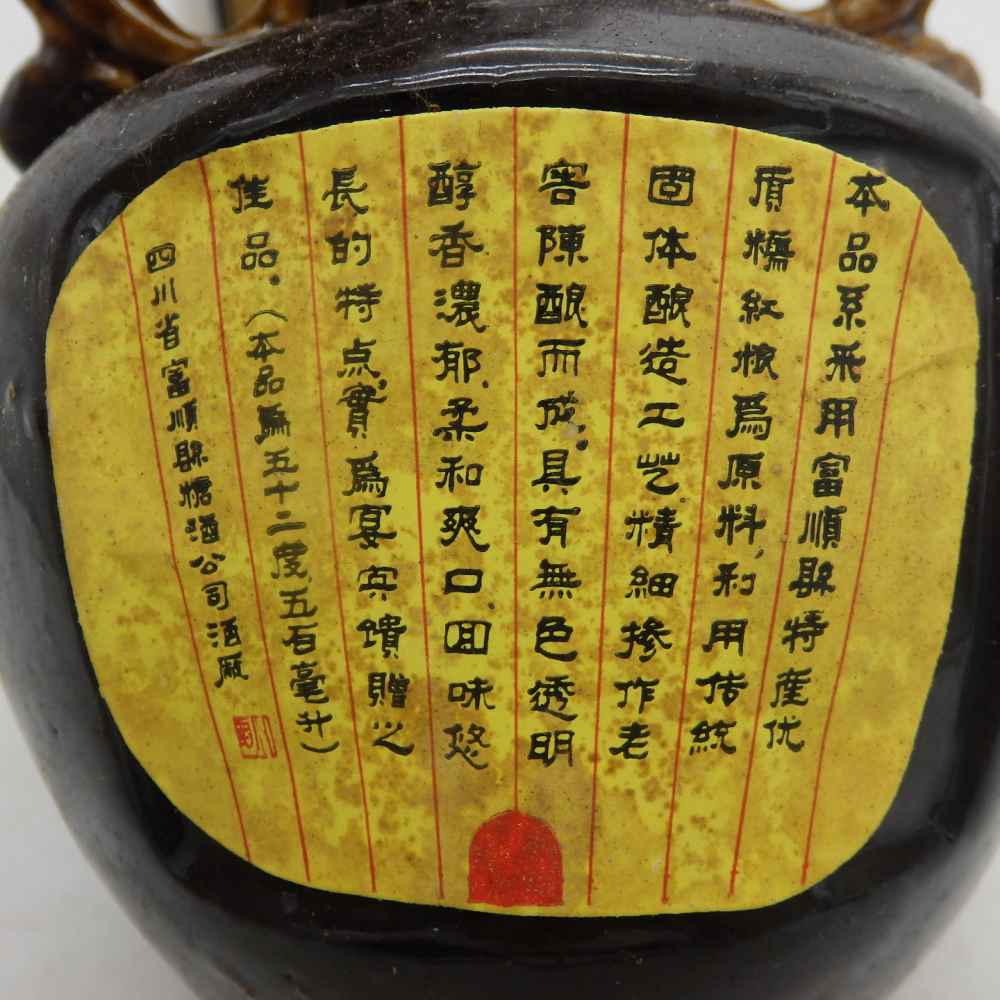 本品系采用富順縣特産优
质糯红粮爲原料,利用传統
固体釀造工艺.精細掺作老
窖陳釀而成,具有無色透明
醇香濃郁,柔和爽口.回味悠
長的特点,實爲宴宾馈贈之
佳品。(本品爲五十二度,五石毫升)
四川省富順縣糖酒公司酒厰